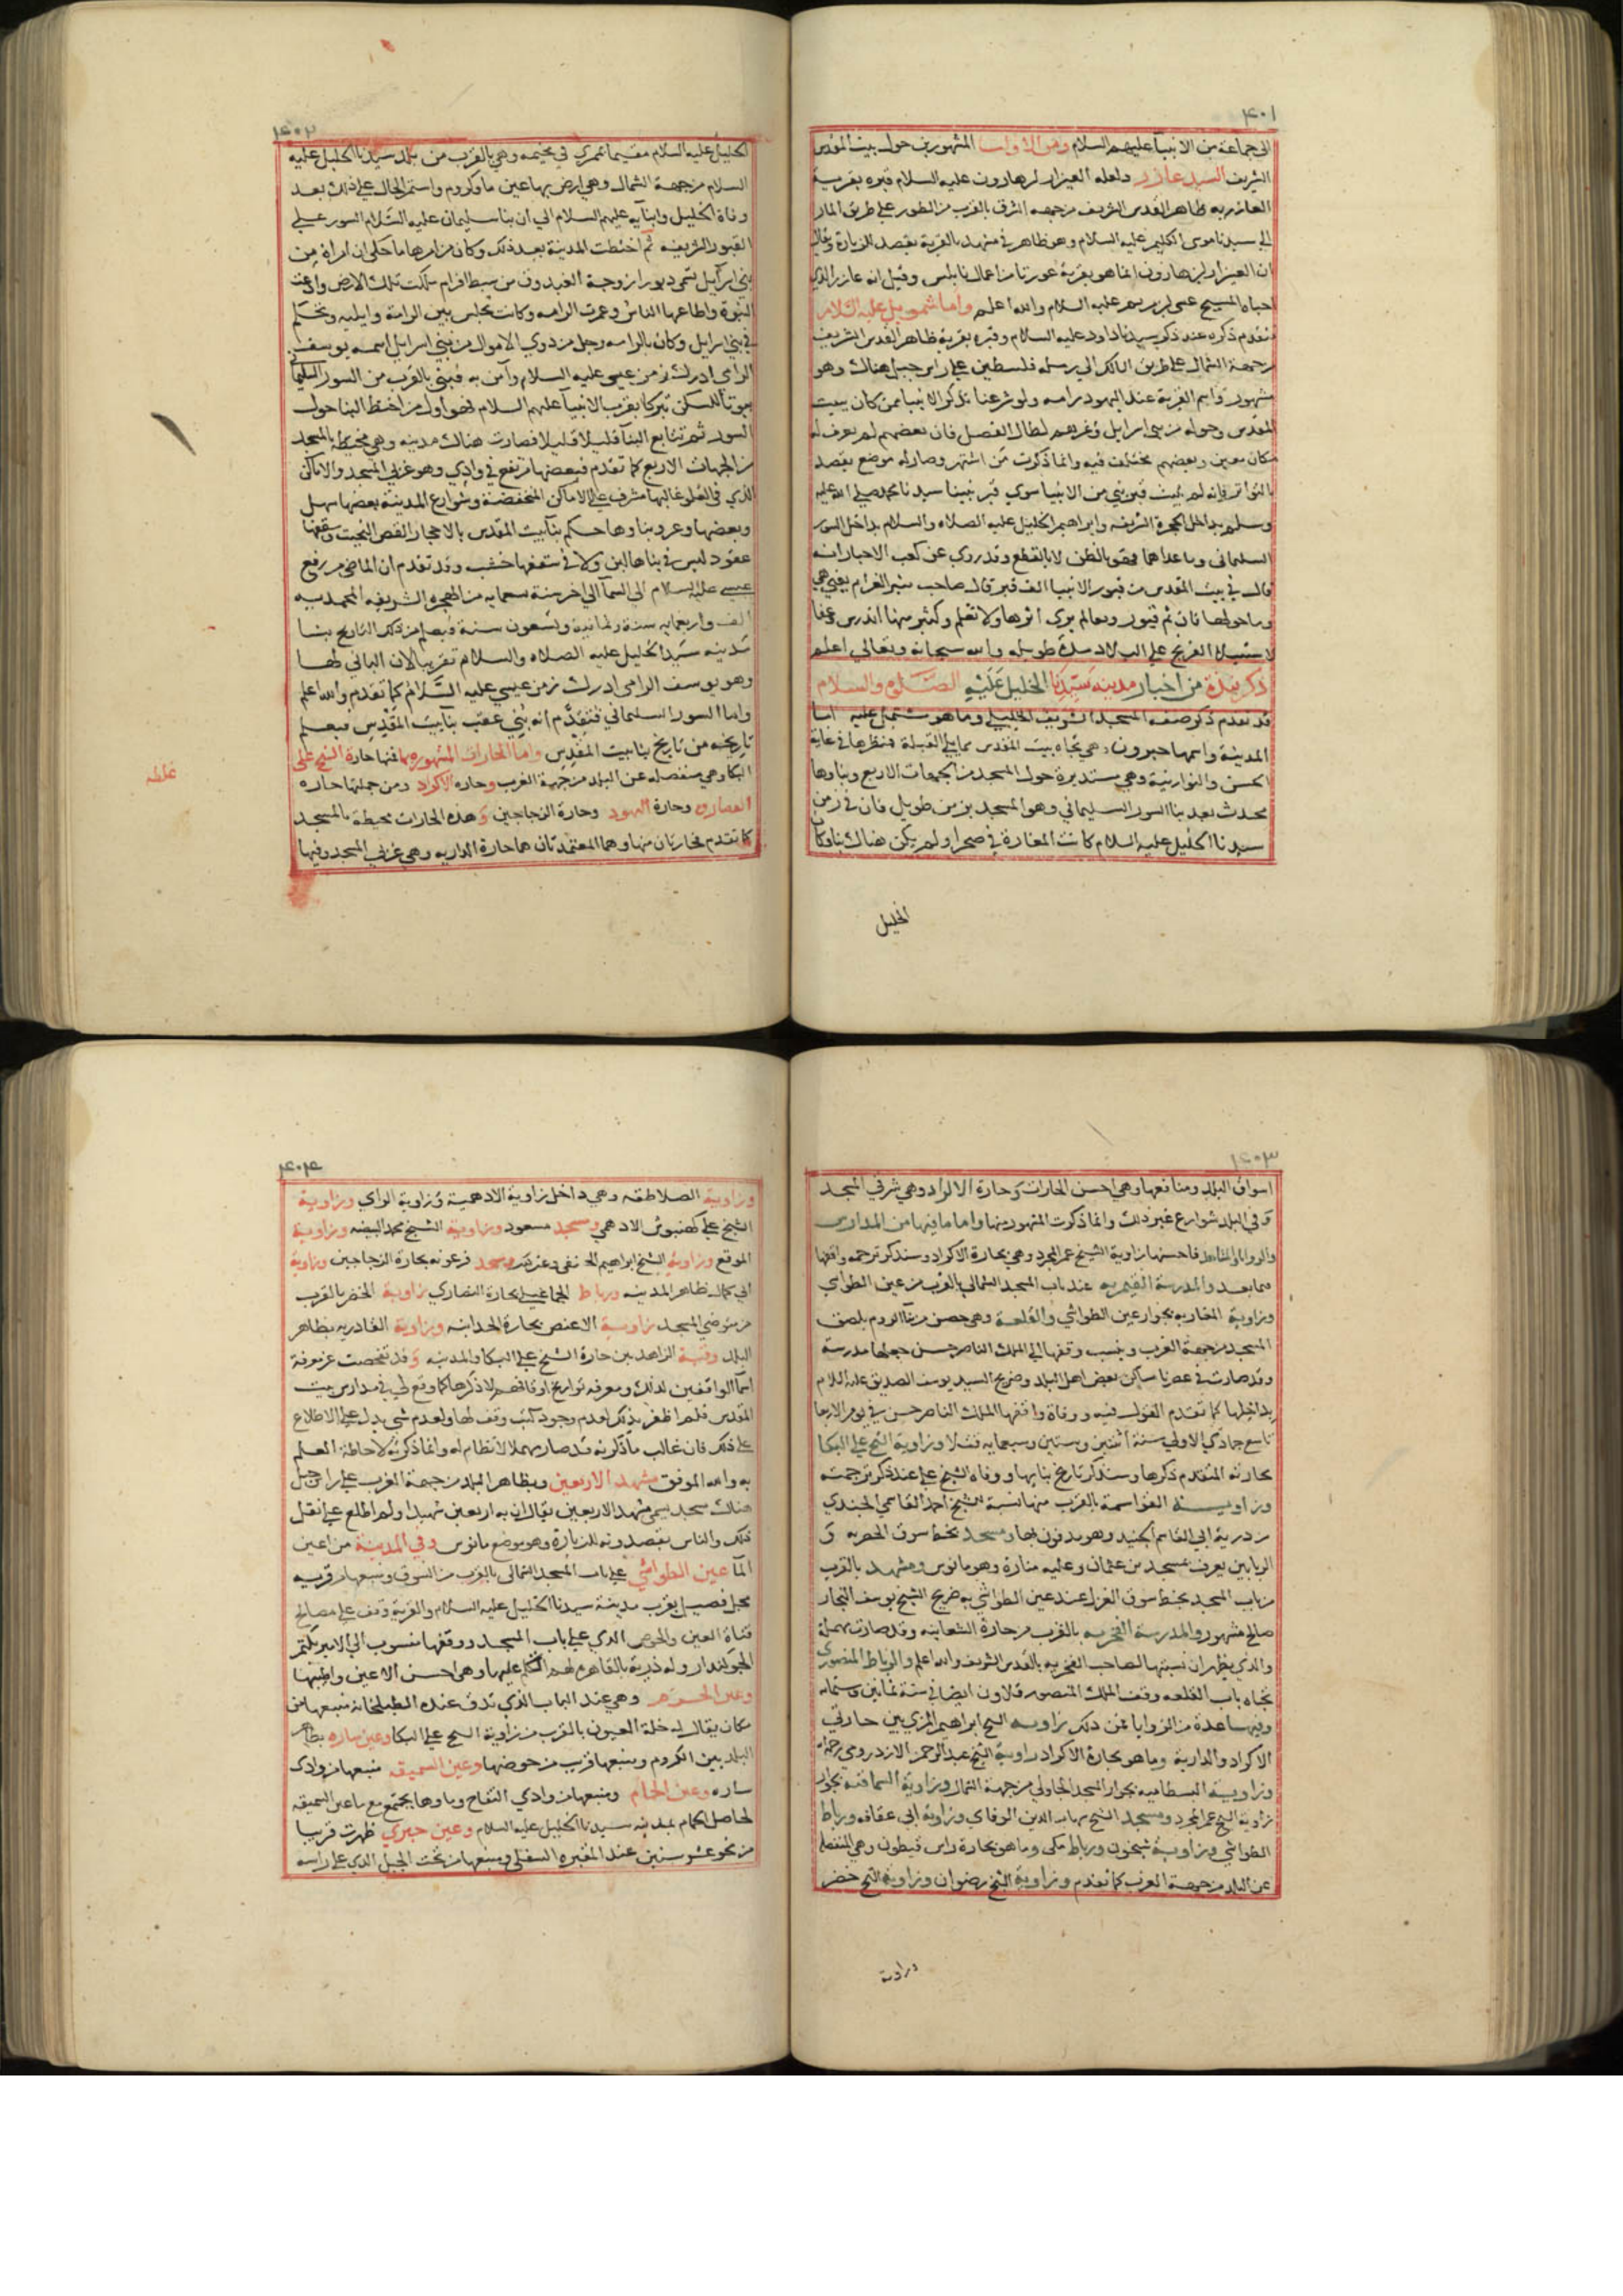 ۴۰۱
الى جماعة من الانبيآ عليهم السلام ومن الاوليا المشهورين حول بيت المقدس
الشريف السيد عازر ولعله العيزار بن هارون عليه السلام قبره بقرية
العازريه ظاهر القدس الشريف من جهه الشرق بالقرب من الطور على طريق المار
الى سيدنا موسى الكليم عليه السلام وهو ظاهر في مشهد بالقرية يقصد للزيارة ويقال
ان العيزار بن هارون انما هو بقرية عورتا من اعمال نابلس وقيل انه عازر الذي
احياه المسيح عيسى ابن مريم عليه السلام والله اعلم واما شمويل عليه السلام
فتقدم ذكره عند ذكر سيدنا داود عليه السلام وقبره بقرية ظاهر القدس الشريف
من جهة الشمال على طريق السالك الى رمله فلسطين على راس جبل هناك وهو
مشهور واسم القرية عند اليهود رامه ولو شرعنا نذكر الانبيا ممن كان ببيت
المقدس وحوله من بني اسرايل وغيرهم لطال الفصل فان بعضهم لم يعرف له
مكان معين وبعضهم مختلف فيه وانما ذكرت من اشتهر وصار له موضع يقصد
بالتواتر فانه لم يثبت قبر نبي من الانبيا سوى قبر نبينا سيدنا محمد صلى الله عليه
وسلم بداخل الحجرة الشريفه وابراهيم الخليل عليه الصلاه والسلام بداخل السور
السليماني وما عداهما فهو بالظن لا بالقطع وقد روي عن كعب الاحبار انه
قال في بيت المقدس من قبور الانبيا الف قبر قال صاحب مثير الغرام يعني هي
وما حولها فان ثم قبور ومعالم يرى اثرها ولا تعلم وكثير منها اندرس وعفا
لاستيلاء الفرنج على البلاد مدة طويله والله سبحانه وتعالى اعلم
ذكر نبذة من اخبار مدينه سيدنا الخليل عليه الصلاه والسلام
قد تقدم ذكر صفه المسجد الشريف الخليلي وما هو مشتمل عليه اما
المدينة واسمها حبرون فهي تجاه بيت المقدس مما يلي القبلة منظرها في غاية
الحسن والنورانية وهي مستديرة حول المسجد من الجهات الاربع وبناوها
محدث بعد بنا السور السليماني وهو المسجد بزمن طويل فان في زمن
سيدنا الخليل عليه السلام كانت المغارة في صحرا ولم يكن هناك بنا وكان
الخليل
۴۰۲
الخليل عليه السلام مقيما بممري في مخيمه وهي بالقرب من بلد سيدنا الخليل عليه
السلام من جهة الشمال وهي ارض بها عين ما وكروم واستمر الحال على ذلك بعد
وفاة الخليل وابنايه عليهم السلام الى ان بنا سليمان عليه السلام السور على
القبور الشريفه ثم اختطت المدينة بعد ذلك وكان من امرها ما حكى ان امراة من
بني اسرآيل تسمى دبورا زوجة الفيدون من سبط افرام سكنت تلك الارض وادعت
النبوة واطاعها الناس وعمرت الرامه وكانت تجلس بين الرامة وايليه وتحكم
في بني اسرايل وكان بالرامه رجل من ذوي الاموال من بني اسرايل اسمه يوسف
الرامى ادرك زمن عيسى عليه السلام وآمن به فبنى بالقرب من السور السليماني
بيوتا للسكن تبركا بقرب الانبيآ عليهم السلام فهو اول من اختط البنا حول
السور ثم تتابع البنآ قليلا قليلا فصارت هناك مدينه وهي محيطة بالمسجد
من الجهات الاربع كما تقدم فبعضها مرتفع في وادي وهو غربي المسجد والاماكن
الذي في العلو غالبها مشرف على الاماكن المنخفضة وشوارع المدينة بعضها سهل
وبعضها وعر وبناوها حكم بنآ بيت المقدس بالاحجار الفص النحيت وسقفها
عقود ليس في بناها لبن ولا في سقفها خشب وقد تقدم ان الماضي من رفع
عيسى عليه السلام الى السمآ الى اخر سنة تسعمايه من الهجره الشريفه المحمديه
الف واربعمايه سنة وثمانية وتسعون سنة فيعلم من ذلك التاريخ بنا
مدينه سيدنا الخليل عليه الصلاه والسلام تقريبا لان الباني لها
وهو يوسف الرامى ادرك زمن عيسى عليه السلام كما تقدم والله اعلم
واما السور السليماني فتقدم انه بني عقب بنا بيت المقدس فيعلم
تاريخه من تاريخ بنا بيت المقدس واما الحارات المشهوره بها فمنها حارة الشيخ على
البكا وهي منفصله عن البلد من جهة الغرب وحاره الاكراد ومن جملتها حاره
النصارى وحارة اليهود وحارة الزجاجين وهذه الحارات محيطة بالمسجد
كما تقدم فحارتان منها وهما المعتمدتان هما حارة الداريه وهي غربي المسجد وفيها
غلط
۴۰۳
اسواق البلد ومنافعها وهي احسن الحارات وحارة الاكراد وهي شرقي المسجد
وفي البلد شوارع غير ذلك وانما ذكرت المشهور منها واما ما فيها من المدارس
والزوايا والمشاهد فاحسنها زاوية الشيخ عمر المجرد وهي بحارة الاكراد وسنذكر ترجمه واقفها
فيما بعد والمدرسة القيمريه عند باب المسجد الشمالي بالقرب من عين الطواشي
وزاوية المغاربه بجوار عين الطواشي والقلعة وهي حصن من بنآ الروم بلصق
المسجد من جهة الغرب وينسب وقفها الى الملك الناصر حسن جعلها مدرسة
وقد صارت في عصرنا مساكن بعض اهل البلد وضريح السيد يوسف الصديق عليه السلام
بداخلها كما تقدم القول فيه ووفاة واقفها الملك الناصر حسن في يوم الاربعا
تاسع جمادى الاولى سنة اثنين وستين وسبعمايه قتلا وزاوية الشيخ على البكا
بحارته المتقدم ذكرها وسنذكر تاريخ بنايها ووفاه الشيخ على عند ذكر ترجمته
وزاويــة القواسمة بالقرب منها نسبة للشيخ احمد القاسمي الجنيدي
من ذرية ابي القاسم الجنيد وهو مدفون بها ومسجد بخط سوق الحصريه و
الزياتين يعرف بمسجد بن عثمان وعليه منارة وهو مانوس ومشهد بالقرب
من باب المسجد بخط سوق الغزل عند عين الطواشي به ضريح الشيخ يوسف النجار
صالح مشهور والمدرسة الفخريه بالقرب من حارة الشعابنه وقد صارت مهملة
والذي يظهر ان نسبتها لصاحب الفخريه بالقدس الشريف والله اعلم والرباط المنصوري
تجاه باب القلعه وقف الملك المنصور قلاون ايضا في سنة ثمانين وستمايه
وفيها عدة من الزوايا فمن ذلك زاويه الشيخ ابراهيم المزي بين حارتي
الاكراد والدارية وما هو بحارة الاكراد زاوية الشيخ عبد الرحمن الازدرومي
وزاويــة البسطاميه بجوار المسجد الجاولي من جهة الشمال وزاوية السماقنه بجوار
زاوية الشيخ عمر المجرد ومسجد الشيخ بهاء الدين الوفاي وزاوية ابي عقافه ورباط
الطواشي وزاويــة شيخون ورباط مكي وما هو بحارة راس قيطون وهي المنفصله
عن البلد من جهة الغرب كما تقدم وزاوية الشيخ رضوان وزاوية الشيخ خضر
وزاوية
۴۰۴
وزاوية الصلاطقه وهي داخل زاوية الادهمية وزاوية الراي وزاوية
الشيخ على كهنبوش الادهمي ومسجد مسعود وزاوية الشيخ محمد البيضه وزاوية
الموقع وزاوية الشيخ ابراهيم الحنفي ومسجد فرعونه بحارة الزجاجين وزاوية
ابي كمال ظاهر المدينه ورباط الجماعيلي بحارة النصارى زاوية الخضر بالقرب
من متوضي المسجد زاويــة الاعنص بحارة الحدابنه وزاوية القادريه بظاهر
البلد وقبة الزاهد بين حارة الشيخ على البكا والمدينه وقد تفحصت عن معرفة
اسمآ الواقفين لذلك ومعرفه تواريخ اوقافهم لاذكرها كما وقع لي في مدارس بيت
المقدس فلم اظفر بذلك لعدم وجود كتب وقف لها ولعدم شي يدل على الاطلاع
على ذلك فان غالب ما ذكرته قد صار مهملا لا نظام له وانما ذكرته لاحاطة العلم
به والله الموفق مشهد الاربعين وبظاهر البلد من جهة الغرب على راس جبل
هناك مسجد يسمى مشهد الاربعين يقال ان به اربعين شهيدا ولم اطلع على نقل
ذلك والناس يقصدونه للزيارة وهو موضع مانوس وفي المدينة من اعين
المآ عين الطواشي على باب المسجد الشمالي بالقرب من السوق ومنبعها من قريه
مجدل فصيل بقرب مدينة سيدنا الخليل عليه السلام والقرية وقف على مصالح
قناة العين والحوض الذي على باب المسجد ووقفها منسوب الى الامير بكتمر
الجوكندار وله ذرية بالقاهره لهم التكلم عليها وهي احسن الاعين واطيبها
وعين الحــر وهي عند الباب الذي تدق عنده الطبلخانه منبعها من
مكان يقال له خلة العيون بالقرب من زاوية الشيخ على البكا وعين ساره بظاهر
البلد بين الكروم ومنبعها قرب من حوضها وعين السميقه منبعها من وادي
ساره وعين الحمام ومنبعها من وادي التفاح وماوها يجتمع مع ماء عين السميقه
لحاصل الحمام بمدينه سيدنا الخليل عليه السلام وعين حبري ظهرت قريبا
من نحو عشر سنين عند المقبره السفلى ومنبعها من تحت الجبل الذي على راسه